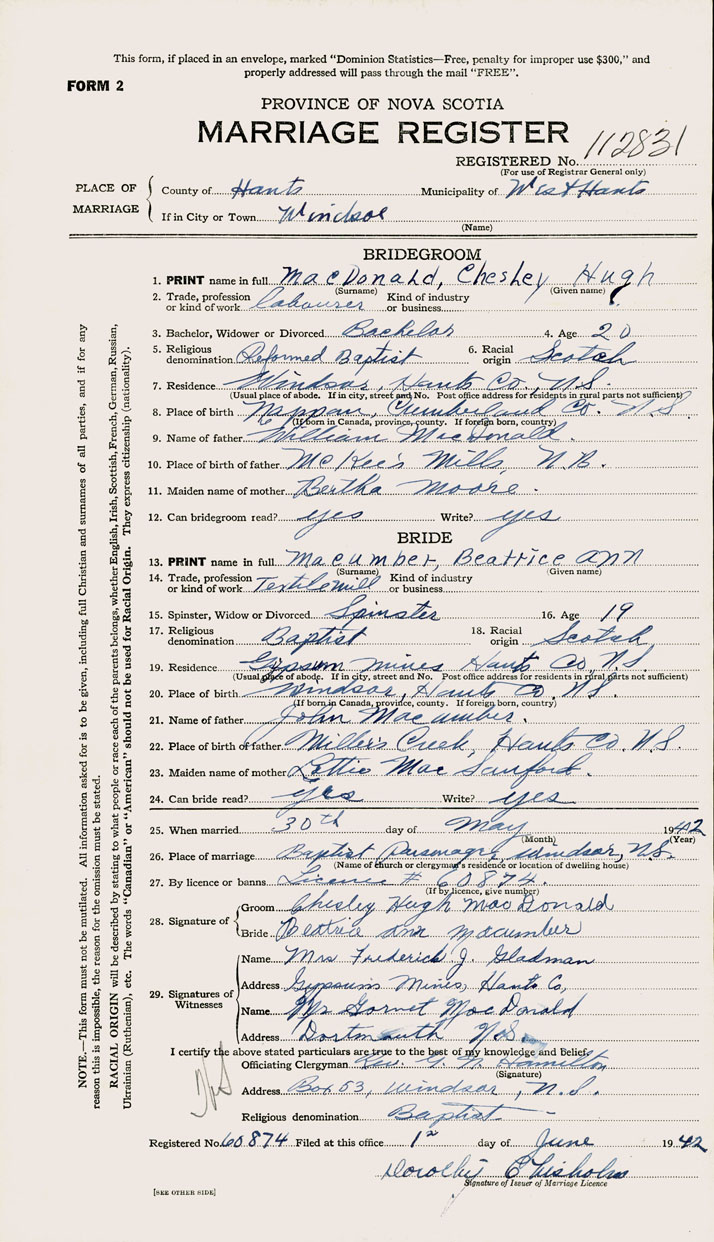 This form, if placed in an envelope, marked "Dominion Statistics—Free, penalty for improper use $300," and
properly addressed will pass through the mail "FREE".
FORM 2
PROVINCE OF NOVA SCOTIA
MARRIAGE REGISTER
REGISTERED No. 112831
(For use of Registrar General only)
PLACE OF MARRIAGE
County of Hants Municipality of West Hants
If in City or Town Windsor
(Name)
BRIDEGROOM
1. PRINT name in full MacDonald, Chesley Hugh
(Surname) (Given name)
2. Trade, profession or kind of work labourer Kind of industry or business
3. Bachelor, Widower or Divorced Bachelor 4. Age 20
5. Religious denomination Reformed Baptist 6. Racial origin Scotch
7. Residence Windsor, Hants Co., N.S.
(Usual place of abode. If in city, street and No. Post office address for residents in rural parts not sufficient)
8. Place of birth Nappan, Cumberland Co. N.S.
(If born in Canada, province, county. If foreign born, country)
9. Name of father William MacDonald.
10. Place of birth of father McKee's Mills, N.B.
11. Maiden name of mother Bertha Moore.
12. Can bridegroom read? yes Write? yes
BRIDE
13. PRINT name in full Macumber, Beatrice Ann
(Surname) (Given name)
14. Trade, profession or kind of work Textile mill Kind of industry or business
15. Spinster, Widow or Divorced Spinster 16. Age 19
17. Religious denomination Baptist 18. Racial origin Scotch
19. Residence Gypsum Mines Hants Co, N.S.
(Usual place of abode. If in city, street and No. Post office address for residents in rural parts not sufficient)
20. Place of birth Windsor, Hants Co. N.S.
(If born in Canada, province, county. If foreign born, country)
21. Name of father John Macumber.
22. Place of birth of father Miller's Creek, Hants Co. N.S.
23. Maiden name of mother Lottie Mae Sanford.
24. Can bride read? yes Write? yes
25. When married 30th day of May 1942
(Month) (Year)
26. Place of marriage Baptist Parsonage, Windsor, N.S.
(Name of church or clergyman's residence or location of dwelling house)
27. By licence or banns Licence # 60874.
(If by licence, give number)
28. Signature of
Groom Chesley Hugh MacDonald
Bride Beatrice Ann Macumber
29. Signatures of Witnesses
Name Mrs Frederick J. Gladman
Address Gypsum Mines, Hants Co,
Name Mr Garnet MacDonald
Address Dartmouth N.S.
I certify the above stated particulars are true to the best of my knowledge and belief
Officiating Clergyman Rev. G. N. Hamilton
(Signature)
Address Box 53, Windsor, N.S.
Religious denomination Baptist
Registered No. 60874 Filed at this office 1st day of June 1942
Dorothy Chisholm
Signature of Issuer of Marriage Licence
[SEE OTHER SIDE]
NOTE.—This form must not be mutilated. All information asked for is to be given, including full Christian and surnames of all parties, and if for any
reason this is impossible, the reason for the omission must be stated.
RACIAL ORIGIN will be described by stating to what people or race each of the parents belongs, whether English, Irish, Scottish, French, German, Russian,
Ukrainian (Ruthenian), etc. The words "Canadian" or "American" should not be used for Racial Origin. They express citizenship (nationality).